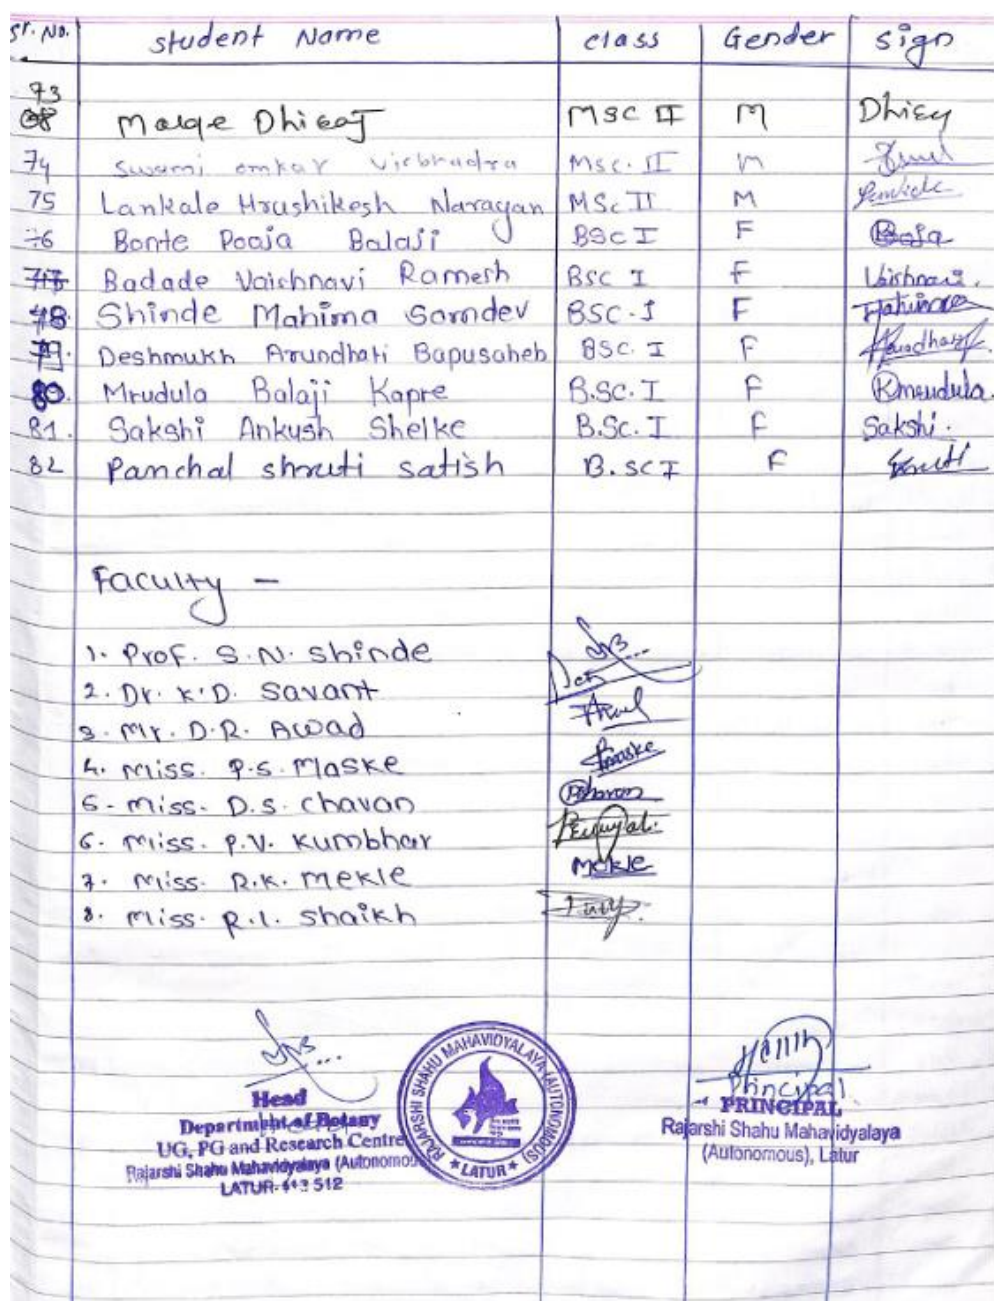 Sr. No. Student Name class Gender sign
73 Malge Dhiraj MSC II M Dhiraj
74 Swami omkar Virbhadra MSC. II M
75 Lankale Hrushikesh Narayan MSc II M
76 Bonte Pooja Balaji BSC I F Pooja
77 Badade Vaishnavi Ramesh BSC I F Vaishnavi.
78 Shinde Mahima Somdev BSC. I F Mahima
79. Deshmukh Arundhati Bapusaheb BSC. I F Arundhati
80. Mrudula Balaji Kapre B.SC. I F Kmrudula.
81. Sakshi Ankush Shelke B.Sc. I F Sakshi.
82 Panchal shruti satish B.SC I F Shruti
Faculty -
1. Prof. S.N. Shinde
2. Dr. K.D. Savant
3. Mr. D.R. Awad
4. Miss. P.S. Maske Pmaske
5. Miss. D.S. Chavan Dchavan
6. Miss. P.V. Kumbhar
7. Miss. R.K. Mekle Mekle
8. Miss. R.I. Shaikh
Head
Department of Botany
UG, PG and Research Centre
Rajarshi Shahu Mahavidyalaya (Autonomous)
LATUR-413 512
RAJARSHI SHAHU MAHAVIDYALAYA (AUTONOMOUS)
★ LATUR ★
Principal
PRINCIPAL
Rajarshi Shahu Mahavidyalaya
(Autonomous), Latur